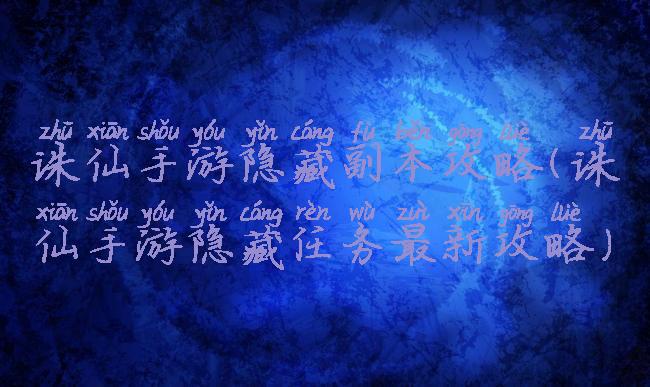 zhū xiān shǒu yóu yǐn cáng fù běn gōng lüè zhū
诛仙手游隐藏副本攻略(诛
xiān shǒu yóu yǐn cáng rèn wù zuì xīn gōng lüè
仙手游隐藏任务最新攻略)